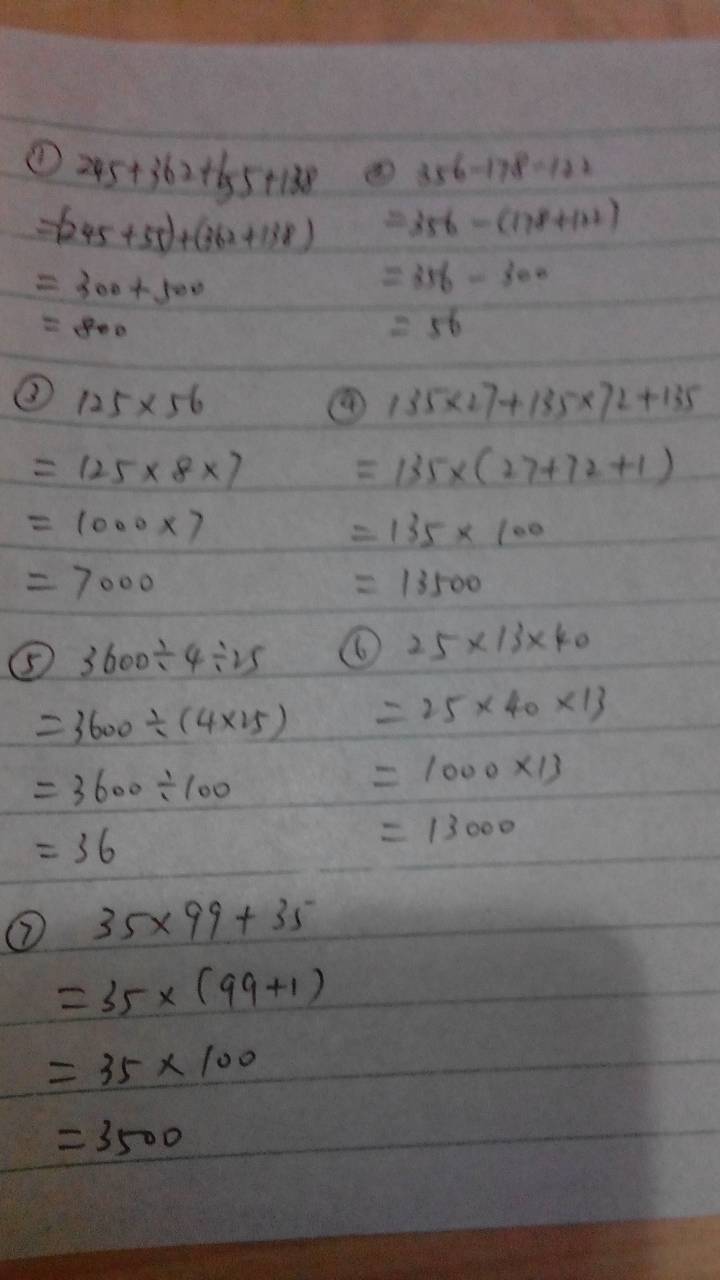 ① 245+362+155+138
=(245+55)+(362+138)
=300+500
=800
② 356-178-122
=356-(178+122)
=356-300
=56
③ 125×56
=125×8×7
=1000×7
=7000
④ 135×27+135×72+135
=135×(27+72+1)
=135×100
=13500
⑤ 3600÷4÷25
=3600÷(4×25)
=3600÷100
=36
⑥ 25×13×40
=25×40×13
=1000×13
=13000
⑦ 35×99+35
=35×(99+1)
=35×100
=3500